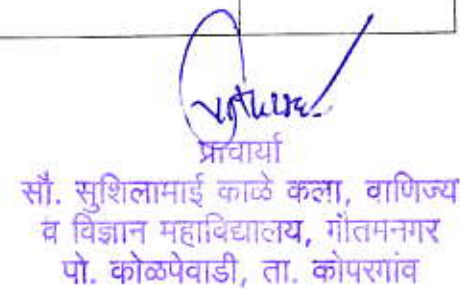 प्राचार्या
सौ. सुशिलामाई काळे कला, वाणिज्य
व विज्ञान महाविद्यालय, गौतमनगर
पो. कोळपेवाडी, ता. कोपरगांव